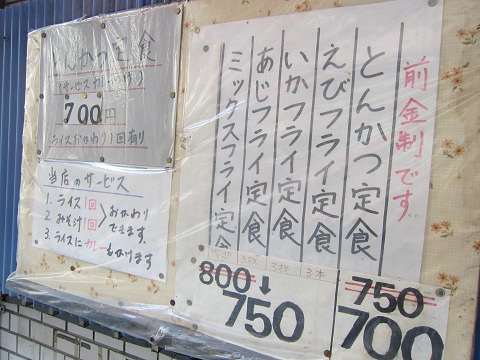 とんかつ定食
(サービスおかわり)
700円
ライスおかわり1回有り
当店のサービス
1. ライス1回
2. みそ汁1回
おかわりできます。
3. ライスにカレーもかけます
前金制です
とんかつ定食
えびフライ定食
いかフライ定食
あじフライ定食
ミックスフライ定食
3本
3枚
3枚
750
700
800↓
750